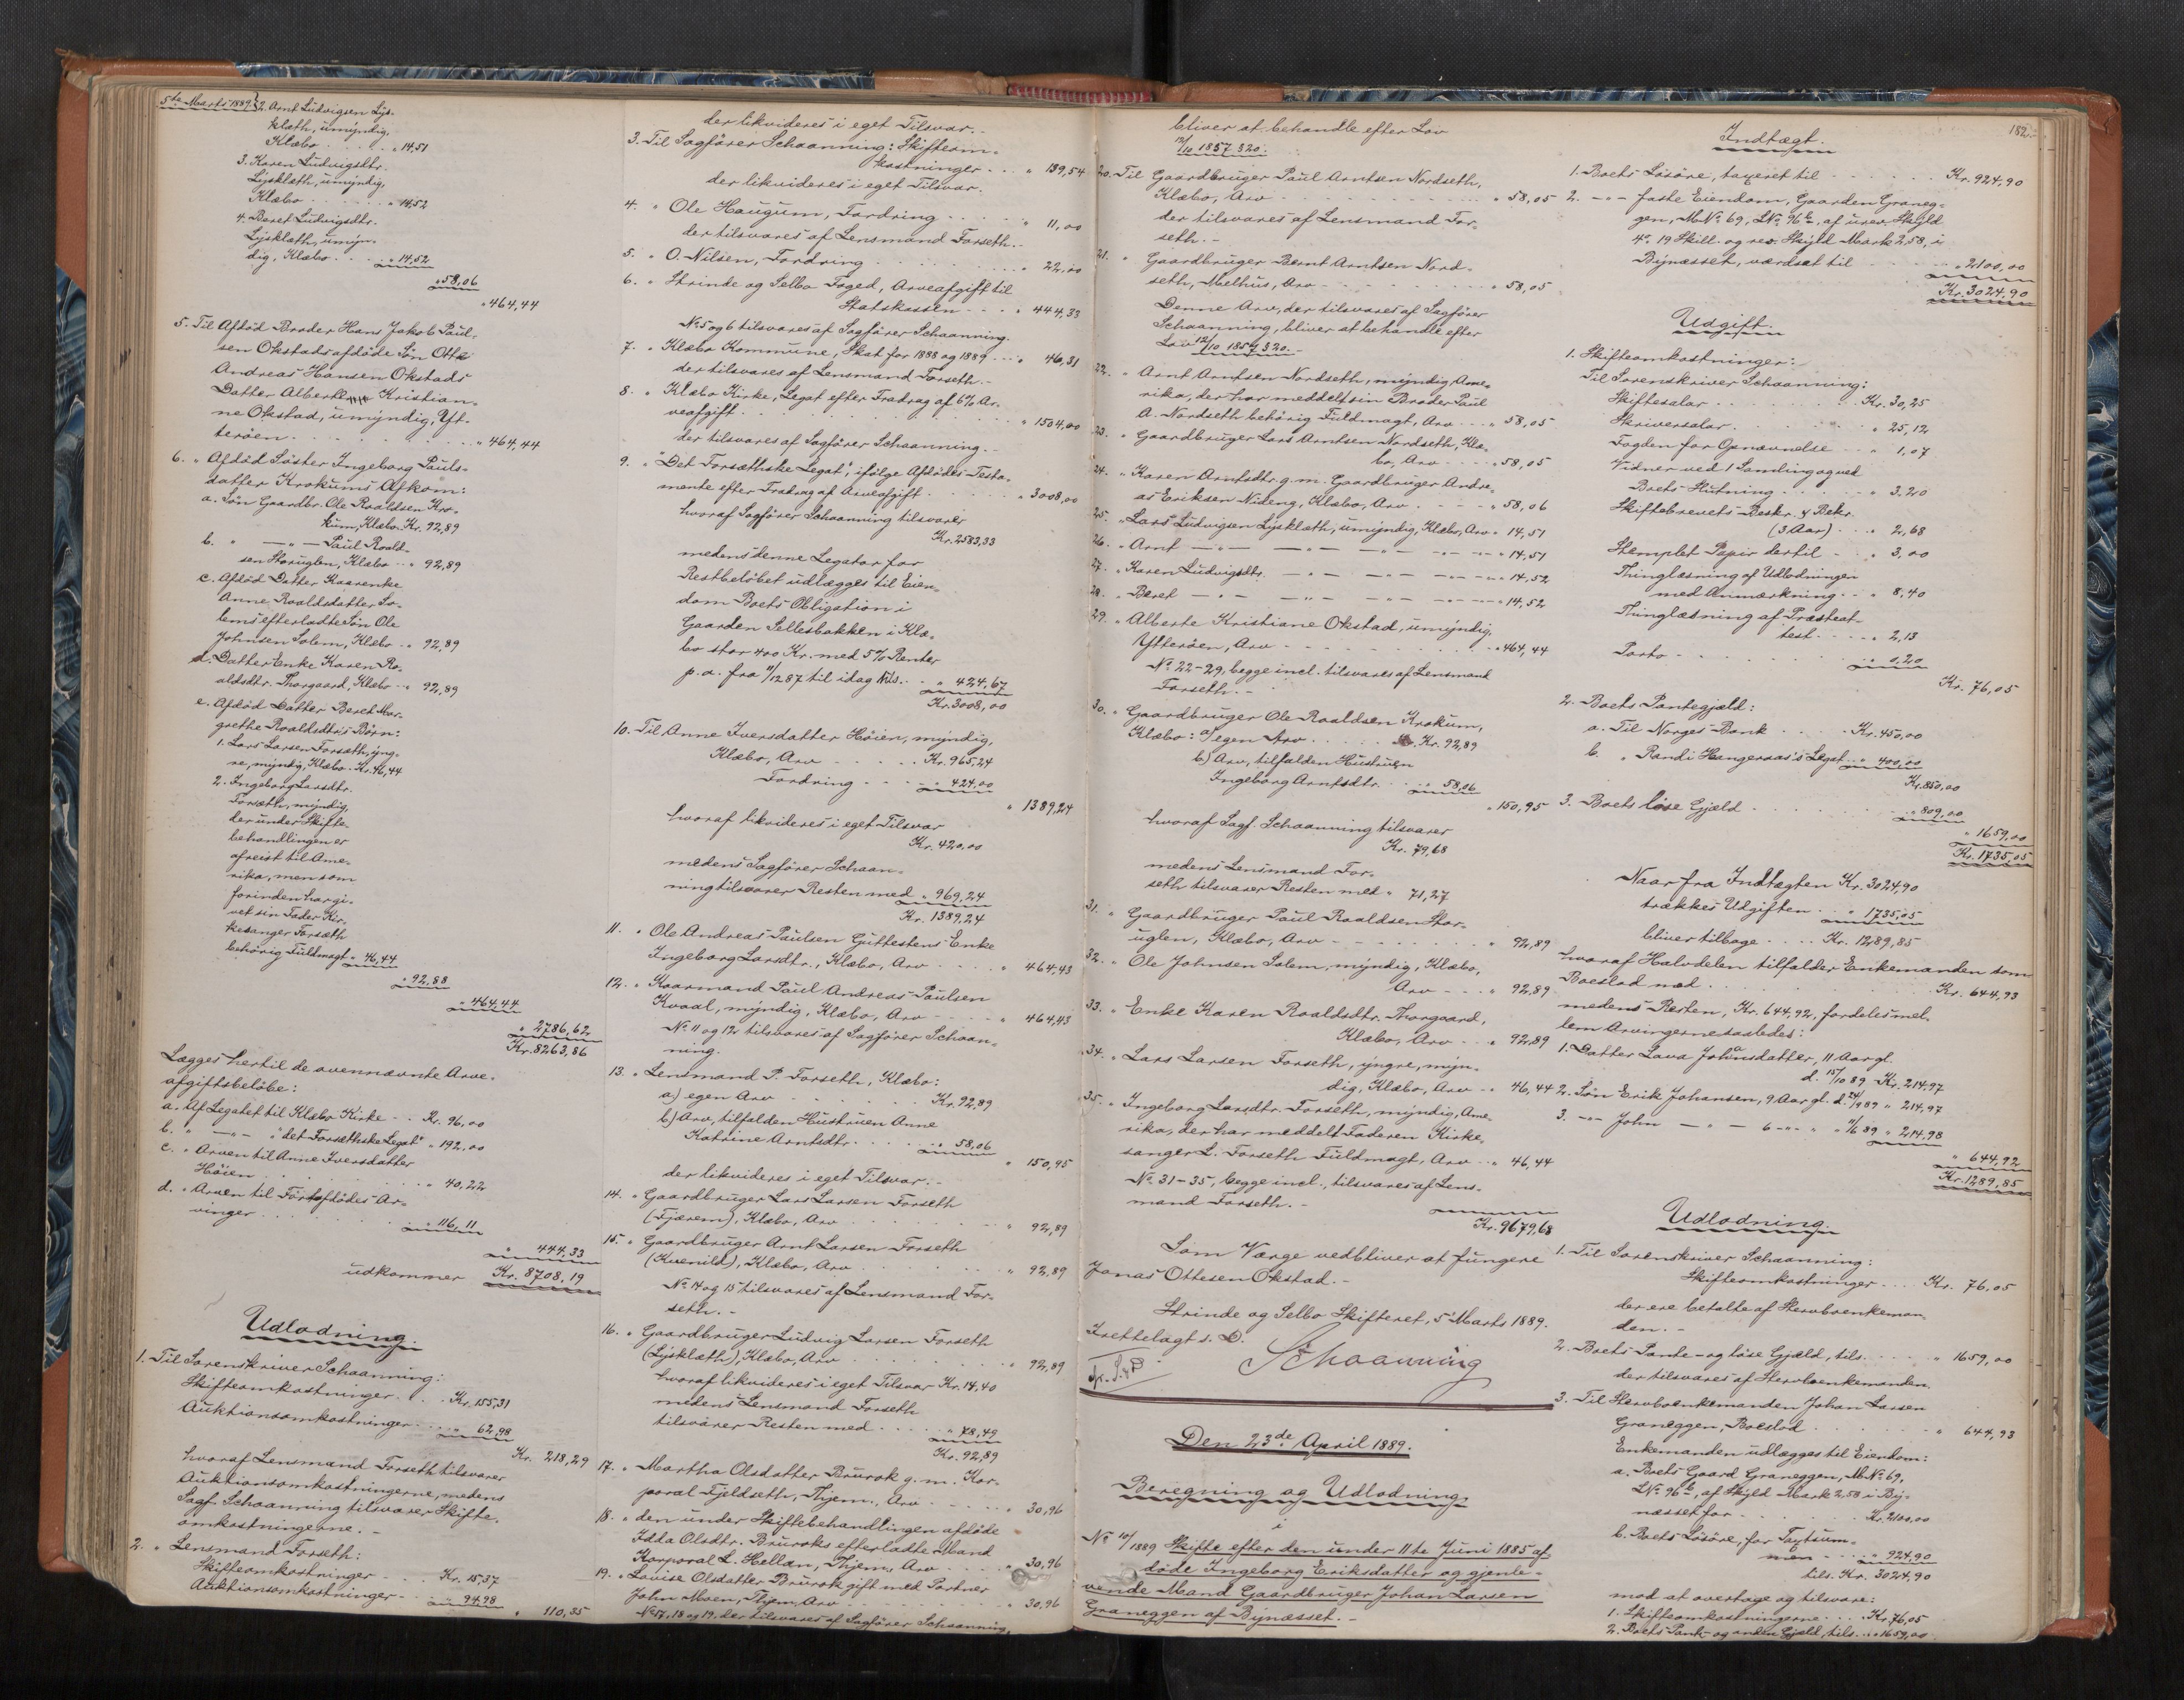 5te Marts 1889. 2. Arnt Ludvigsen Lys-
klæth, umyndig,
Klæbo . . . . „ 14,51
3. Karen Ludvigsdtr.
Lysklæth, umyndig,
Klæbo . . . . „ 14,52
4. Beret Ludvigsdtr.
Lysklæth, umyn-
dig, Klæbo . . . „ 14,52
„ 58,06
„ 464,44
5. Til Afdød Broder Hans Jakob Paul-
sen Okstads afdøde Søn Otte
Andreas Hansen Okstads
Datter Alberte Kristian-
ne Okstad, umyndig, Yt-
terøen . . . . „ 464,44
6. „ Afdød Søster Ingeborg Pauls-
datter Krokums Afkom:
a. Søn Gaardbr. Ole Roaldsen Kro-
kum, Klæbo. Kr. 92,89
b. „ — „ — Paul Roald-
sen Storuglen, Klæbo . . „ 92,89
c. Afdød Datter Kaarenke
Anne Roaldsdatter So-
lems efterladte Søn Ole
Johnsen Solem, Klæbo . . „ 92,89
d. Datter Enke Karen Ro-
aldsdtr. Thorgaard, Klæbo . . „ 92,89
e. Afdød Datter Beret Mar-
grethe Roaldsdtr's Børn:
1. Lars Larsen Forsæth, yng-
re, myndig, Klæbo. Kr. 46,44
2. Ingeborg Larsdtr.
Forsæth, myndig,
der under Skifte-
behandlingen er
afreist til Ame-
rika, men som
forinden har gi-
vet sin Fader Kir-
kesanger Forsæth
behørig Fuldmagt „ 46,44
„ 92,88
„ 464,44
„ 2786,62
Kr. 8263,86
Lægges hertil de ovennævnte Arve-
afgiftsbeløbe:
a. Af Legatet til Klæbo Kirke . . Kr. 96,00
b. „ — „ — „ det Forsethske Legat" „ 192,00
c. „ Arven til Anne Iversdatter
Høien . . . . „ 40,22
d. „ Arven til Førstafdødes Ar-
vinger . . . . „ 116,11
„ 444,33
udkommer Kr. 8708,19
Udlodning.
1. Til Sorenskriver Schaanning:
Skifteomkostninger . . Kr. 155,31
Auktionsomkostninger . . „ 62,98
Kr. 218,29
hvoraf Lensmand Forseth tilsvarer
Auktionsomkostningerne, medens
Sagf. Schaanning tilsvarer Skifte-
omkostningerne. -
2. „ Lensmand Forseth:
Skifteomkostninger . . Kr. 15,37
Auktionsomkostninger . . „ 94,98
„ 110,35
der likvideres i eget Tilsvar. -
3. Til Sagfører Schaanning: Skifteom-
kostninger . . . „ 139,54
der likvideres i eget Tilsvar.
4. „ Ole Haugum, Fordring . . . . „ 11,00
der tilsvares af Lensmand Forseth. -
5. „ O. Nilsen, Fordring . . . . „ 22,00
6. „ Strinde og Selbo Foged, Arveafgift til
Statskassen . . . „ 444,33
No. 5 og 6 tilsvares af Sagfører Schaanning.
7. „ Klæbo Kommune, Skat for 1888 og 1889 . . . „ 46,31
der tilsvares af Lensmand Forseth. -
8. „ Klæbo Kirke, Legat efter Fradrag af 6% Ar-
veafgift . . . . „ 1504,00
der tilsvares af Sagfører Schaanning. -
9. „ "Det Forsæthske Legat", ifølge Afdødes Testa-
mente efter Fradrag af Arveafgift . . . „ 3008,00
hvoraf Sagfører Schaanning tilsvarer
Kr. 2583,33
medens denne Legator for
Restbeløbet udlægges til Eien-
dom Boets Obligation i
Gaarden Sellesbakken i Klæ-
bo stor 400 Kr. med 5% Renter
p. a. fra 11/12 87 til idag tils. . „ 424,67
Kr. 3008,00
10. Til Anne Iversdatter Høien, myndig,
Klæbo, Arv . . . . Kr. 965,24
Fordring . . . „ 424,00
„ 1389,24
hvoraf likvideres i eget Tilsvar
Kr. 420,00
medens Sagfører Schaan-
ning tilsvarer Resten med „ 969,24
Kr. 1389,24
11. „ Ole Andreas Paulsen Guttestens Enke
Ingeborg Larsdtr., Klæbo, Arv . . . „ 464,43
12. „ Kaarmand Paul Andreas Paulsen
Kvaal, myndig, Klæbo, Arv . . . „ 464,43
No. 11 og 12 tilsvares af Sagfører Schaan-
ning.
13. „ Lensmand P. Forseth, Klæbo:
a) egen Arv . . . . Kr. 92,89
b) Arv, tilfalden Hustruen Anne
Katrine Arntsdtr. . . . „ 58,06
„ 150,95
der likvideres i eget Tilsvar. -
14. „ Gaardbruger Lars Larsen Forseth
(Fjærem), Klæbo, Arv . . . . „ 92,89
15. „ Gaardbruger Arnt Larsen Forseth
(Kuenild), Klæbo, Arv . . . . „ 92,89
No. 14 og 15 tilsvares af Lensmand For-
seth. -
16. „ Gaardbruger Ludvig Larsen Forseth
(Lysklæth), Klæbo, Arv . . . . „ 92,89
hvoraf likvideres i eget Tilsvar Kr. 14,40
medens Lensmand Forseth
tilsvarer Resten med . . . „ 78,49
Kr. 92,89
17. „ Martha Olsdatter Brurok g. m. Kor-
poral Fjeldseth, Thjem., Arv . . . „ 30,96
18. „ den under Skiftebehandlingen afdøde
Idda Olsdtr. Bruroks efterladte Mand
Korporal L. Hellan, Thjem, Arv . . . „ 30,96
19. „ Lovise Olsdatter Brurok gift med Partner
John Moen, Thjem, Arv . . . . „ 30,96
No. 17, 18 og 19, der tilsvares af Sagfører Schaanning,
bliver at behandle efter Lov
12/10 1857 § 20.
20. Til Gaardbruger Paul Arntsen Nordseth,
Klæbo, Arv . . . . „ 58,05
der tilsvares af Lensmand For-
seth. -
21. „ Gaardbruger Bernt Arntsen Nord-
seth, Melhus, Arv . . . . „ 58,05
Denne Arv, der tilsvares af Sagfører
Schaanning, bliver at behandle efter
Lov 12/10 1857 § 20. -
22. „ Arnt Arntsen Nordseth, myndig, Ame-
rika, der har meddelt sin Broder Paul
A. Nordseth behørig Fuldmagt, Arv . . . „ 58,05
23. „ Gaardbruger Lars Arntsen Nordseth, Klæ-
bo, Arv . . . „ 58,05
24. „ Karen Arntsdtr. g. m. Gaardbruger Andre-
as Eriksen Nideng, Klæbo, Arv . . . . „ 58,06
25. „ Lars Ludvigsen Lysklæth, umyndig, Klæbo, Arv „ 14,51
26. „ Arnt — „ — — „ — — „ — — „ — „ 14,51
27. „ Karen Ludvigsdtr. — „ — — „ — — „ — „ 14,52
28. „ Beret — „ — — „ — — „ — — „ — „ 14,52
29. „ Alberte Kristiane Okstad, umyndig,
Ytterøen, Arv . . . . „ 464,44
No. 22-29, begge incl. tilsvares af Lensmand
Forseth. -
30. „ Gaardbruger Ole Roaldsen Krokum,
Klæbo: a) egen Arv . . . . Kr. 92,89
b) Arv, tilfalden Hustruen
Ingeborg Arntsdtr. . . „ 58,06
„ 150,95
hvoraf Sagf. Schaanning tilsvarer
Kr. 79,68
medens Lensmand For-
seth tilsvarer Resten med „ 71,27
31. „ Gaardbruger Paul Roaldsen Stor-
uglen, Klæbo, Arv . . . . „ 92,89
32. „ Ole Johnsen Solem, myndig, Klæbo,
Arv . . . „ 92,89
33. „ Enke Karen Roaldsdtr. Thorgaard,
Klæbo, Arv . . „ 92,89
34. „ Lars Larsen Forseth, yngre, myn-
dig, Klæbo, Arv . . „ 46,44
35. „ Ingeborg Larsdtr. Forseth, myndig, Ame-
rika, der har meddelt Faderen Kirke-
sanger L. Forseth Fuldmagt, Arv . . „ 46,44
No. 31-35, begge incl., tilsvares af Lens-
mand Forseth. -
Kr. 9679,68
Som Værge vedbliver at fungere
Jonas Ottesen Okstad. -
Strinde og Selbo Skifteret, 5 Marts 1889.
Irettelagt s. D.
Schaanning
Den 23de April 1889.
Beregning og Udlodning
i
No 10/1889 Skifte efter den under 11te Juni 1885 af-
døde Ingeborg Eriksdatter og gjenle-
vende Mand Gaardbruger Johan Larsen
Graneggen af Bynæsset. -
182.
Indtægt.
1. Boets Løsøre, taxeret til . . . . Kr. 924,90
2. — „ — faste Eiendom, Gaarden Graneg-
gen, M.No. 69, LNo. 96b, af urev. Skyld
19 Skill. og rev. Skyld Mark 2,58, i
Bynæsset, værdsat til . . . „ 2100,00
Kr. 3024,90
Udgift.
1. Skifteomkostninger:
Til Sorenskriver Schaanning:
Skiftesalar . . . . Kr. 30,25
Skriversalar . . . . „ 25,12
Fogden for Opnævnelse . . „ 1,07
Vidner ved 1 Samling og ved
Boets Slutning . . . . „ 3,20
Skiftebrevets Beskr. & Bekr.
(3 Aar) . . . „ 2,68
Stemplet Papir dertil . . „ 3,00
Thinglæsning af Udlodningen
med Anmærkning . . „ 8,40
Thinglæsning af Præsteat-
test . . . . „ 2,13
Porto . . . . „ 0,20
Kr. 76,05
2. Boets Pantegjæld:
a. Til Norges Bank . . . Kr. 450,00
b. „ Randi Hangeraas's Legat . . „ 400,00
Kr. 850,00
3. Boets løse Gjæld . . . . „ 809,00
„ 1659,00
Kr. 1735,05
Naar fra Indtægten Kr. 3024,90
trækkes Udgiften . . „ 1735,05
bliver tilbage . . . Kr. 1289,85
hvoraf Halvdelen tilfalder Enkemanden som
Boeslod med . . . . Kr. 644,93
medens Resten, Kr. 644,92, fordeles mel-
lem Arvingerne saaledes:
1. Datter Lava Johansdatter, 11 Aar gl.
d. 15/10 89 - Kr. 214,97
2. Søn Erik Johansen, 9 Aar gl. d. 24/9 89 „ 214,97
3. — „ — John — „ — 6 — „ — „ „ 11/6 89 „ 214,98
„ 644,92
Kr. 1289,85
Udlodning.
1. Til Sorenskriver Schaanning:
Skifteomkostninger . . . Kr. 76,05
der ere betalte af Stervboenkeman-
den. -
2. Boets Pante- og løse Gjæld, tils. . . . „ 1659,00
der tilsvares af Stervboenkemanden.
3. Til Stervboenkemanden Johan Larsen
Graneggen, Boeslod . . . . „ 644,93
Enkemanden udlægges til Eiendom:
a. Boets Gaard Graneggen, M.No. 69,
LNo. 96b, af Skyld Mark 2,58 i By-
næsset for . . . . Kr. 2100,00
b. Boets Løsøre, for Taxtsum-
men . . . „ 924,90
tils. Kr. 3024,90
mod at overtage og tilsvare:
1. Skifteomkostningerne . . . Kr. 76,05
2. Boets Pante- og anden Gjæld, tils. . . „ 1659,00